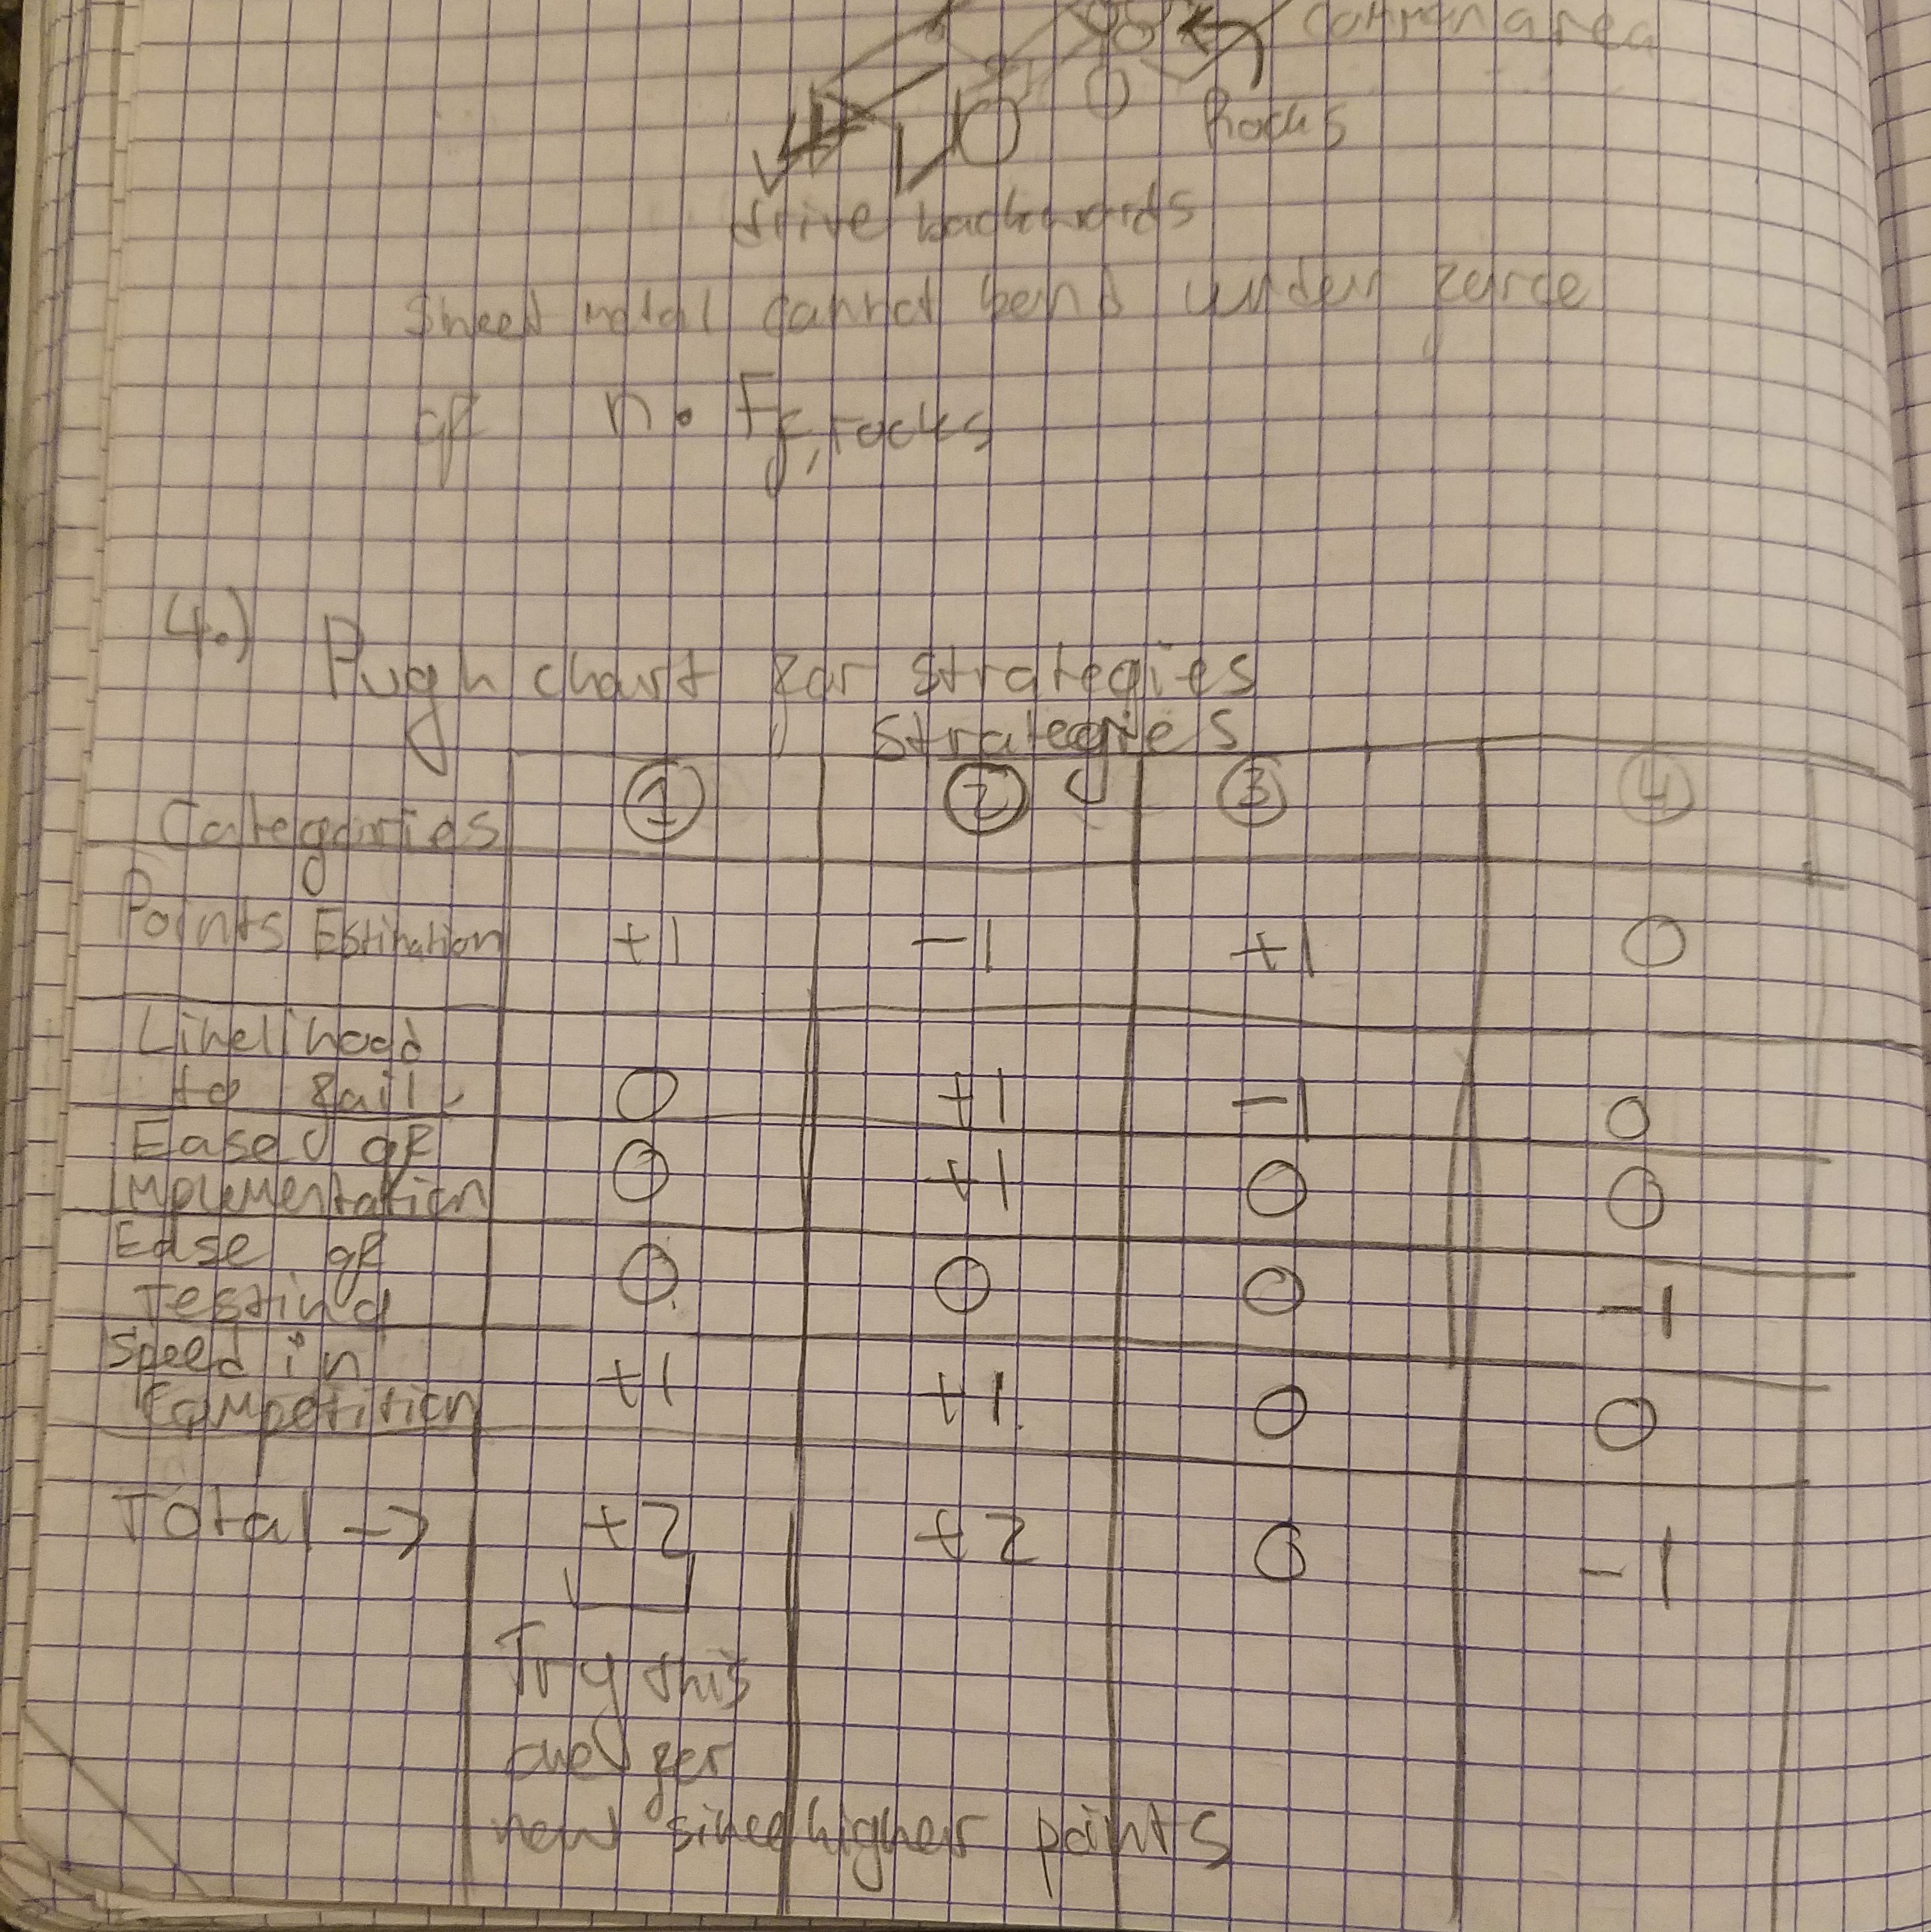 common area
Rocks
drive backwards
Sheet metal cannot bend under force
of n • Ff, rocks
4.) Pugh chart for strategies
Strategies
Categories 1 2 3 4
Points Estimation +1 -1 +1 0
Likelihood
to fail 0 +1 -1 0
Ease of
implementation 0 +1 0 0
Ease of
Testing 0 0 0 -1
Speed in
Competition +1 +1 0 0
Total -> +2 +2 0 -1
Try this
one for
now since higher points